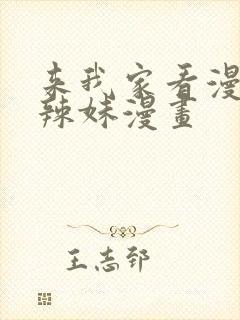 来我家看漫
辣妹漫畫
王志郅